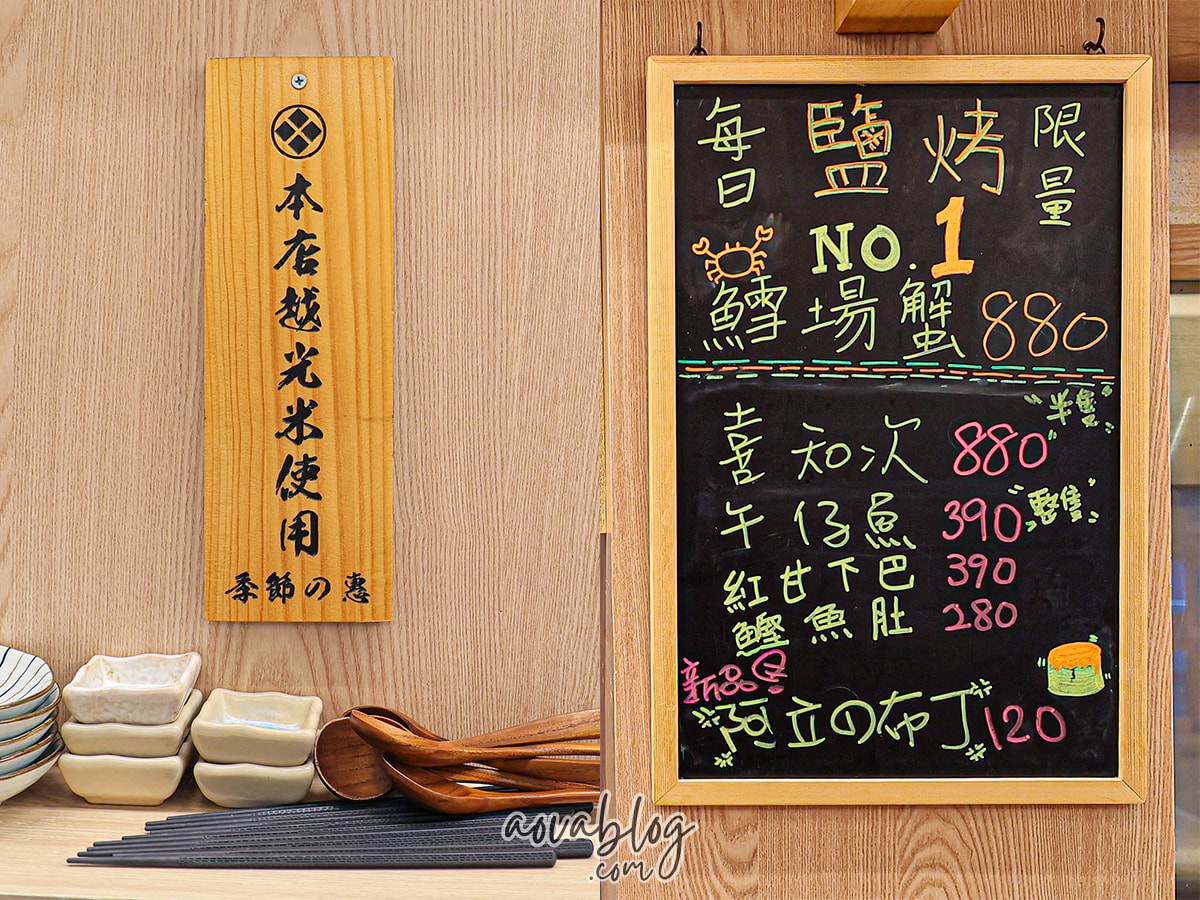 本店越光米使用
季節の惠
每日 鹽烤 限量
NO.1
鱈場蟹 880
喜知次 880 "半隻"
午仔魚 390 "整隻"
紅甘下巴 390
鰹魚肚 280
新品
阿立の布丁 120
aovablog
.com